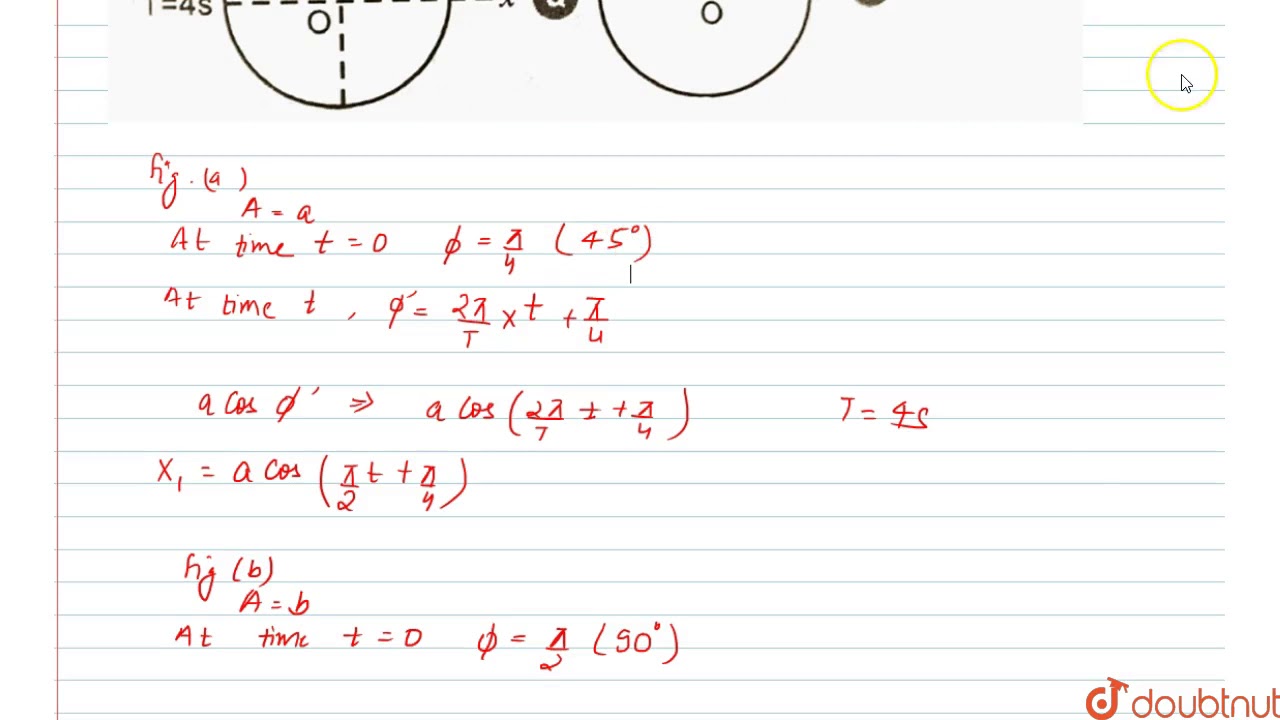 T=4s
O
x
a
O
fig. (a)
A = a
At time t = 0 ϕ = π/4 (45°)
At time t, ϕ' = 2π/T × t + π/4
a cos ϕ' ⇒ a cos (2π/T t + π/4) T = 4s
x₁ = a cos (π/2 t + π/4)
fig (b)
A = b
At time t = 0 ϕ = π/2 (90°)
doubtnut